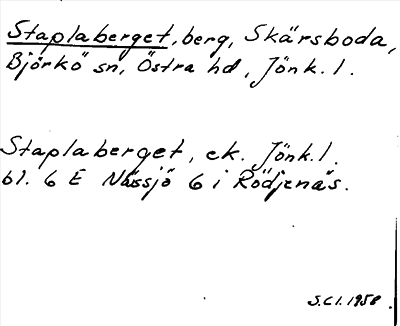 Staplaberget, berg, Skärsboda,
Björkö sn, Östra hd, Jönk. l.
Staplaberget, ek. Jönk. l.
bl. 6 E Nässjö 6 i Rödjenäs.
S.Cl. 1958.